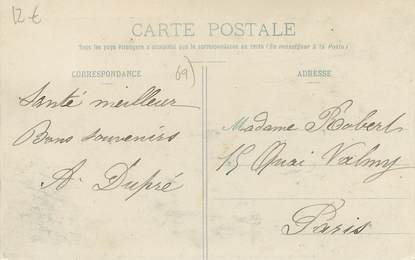 12 €
CARTE POSTALE
Tous les pays étrangers n'acceptent pas la correspondance au recto (Se renseigner à la Poste)
CORRESPONDANCE
69)
ADRESSE
Santé meilleur
Bons souvenirs
A. Dupré
Madame Robert
15 Quai Valmy
Paris